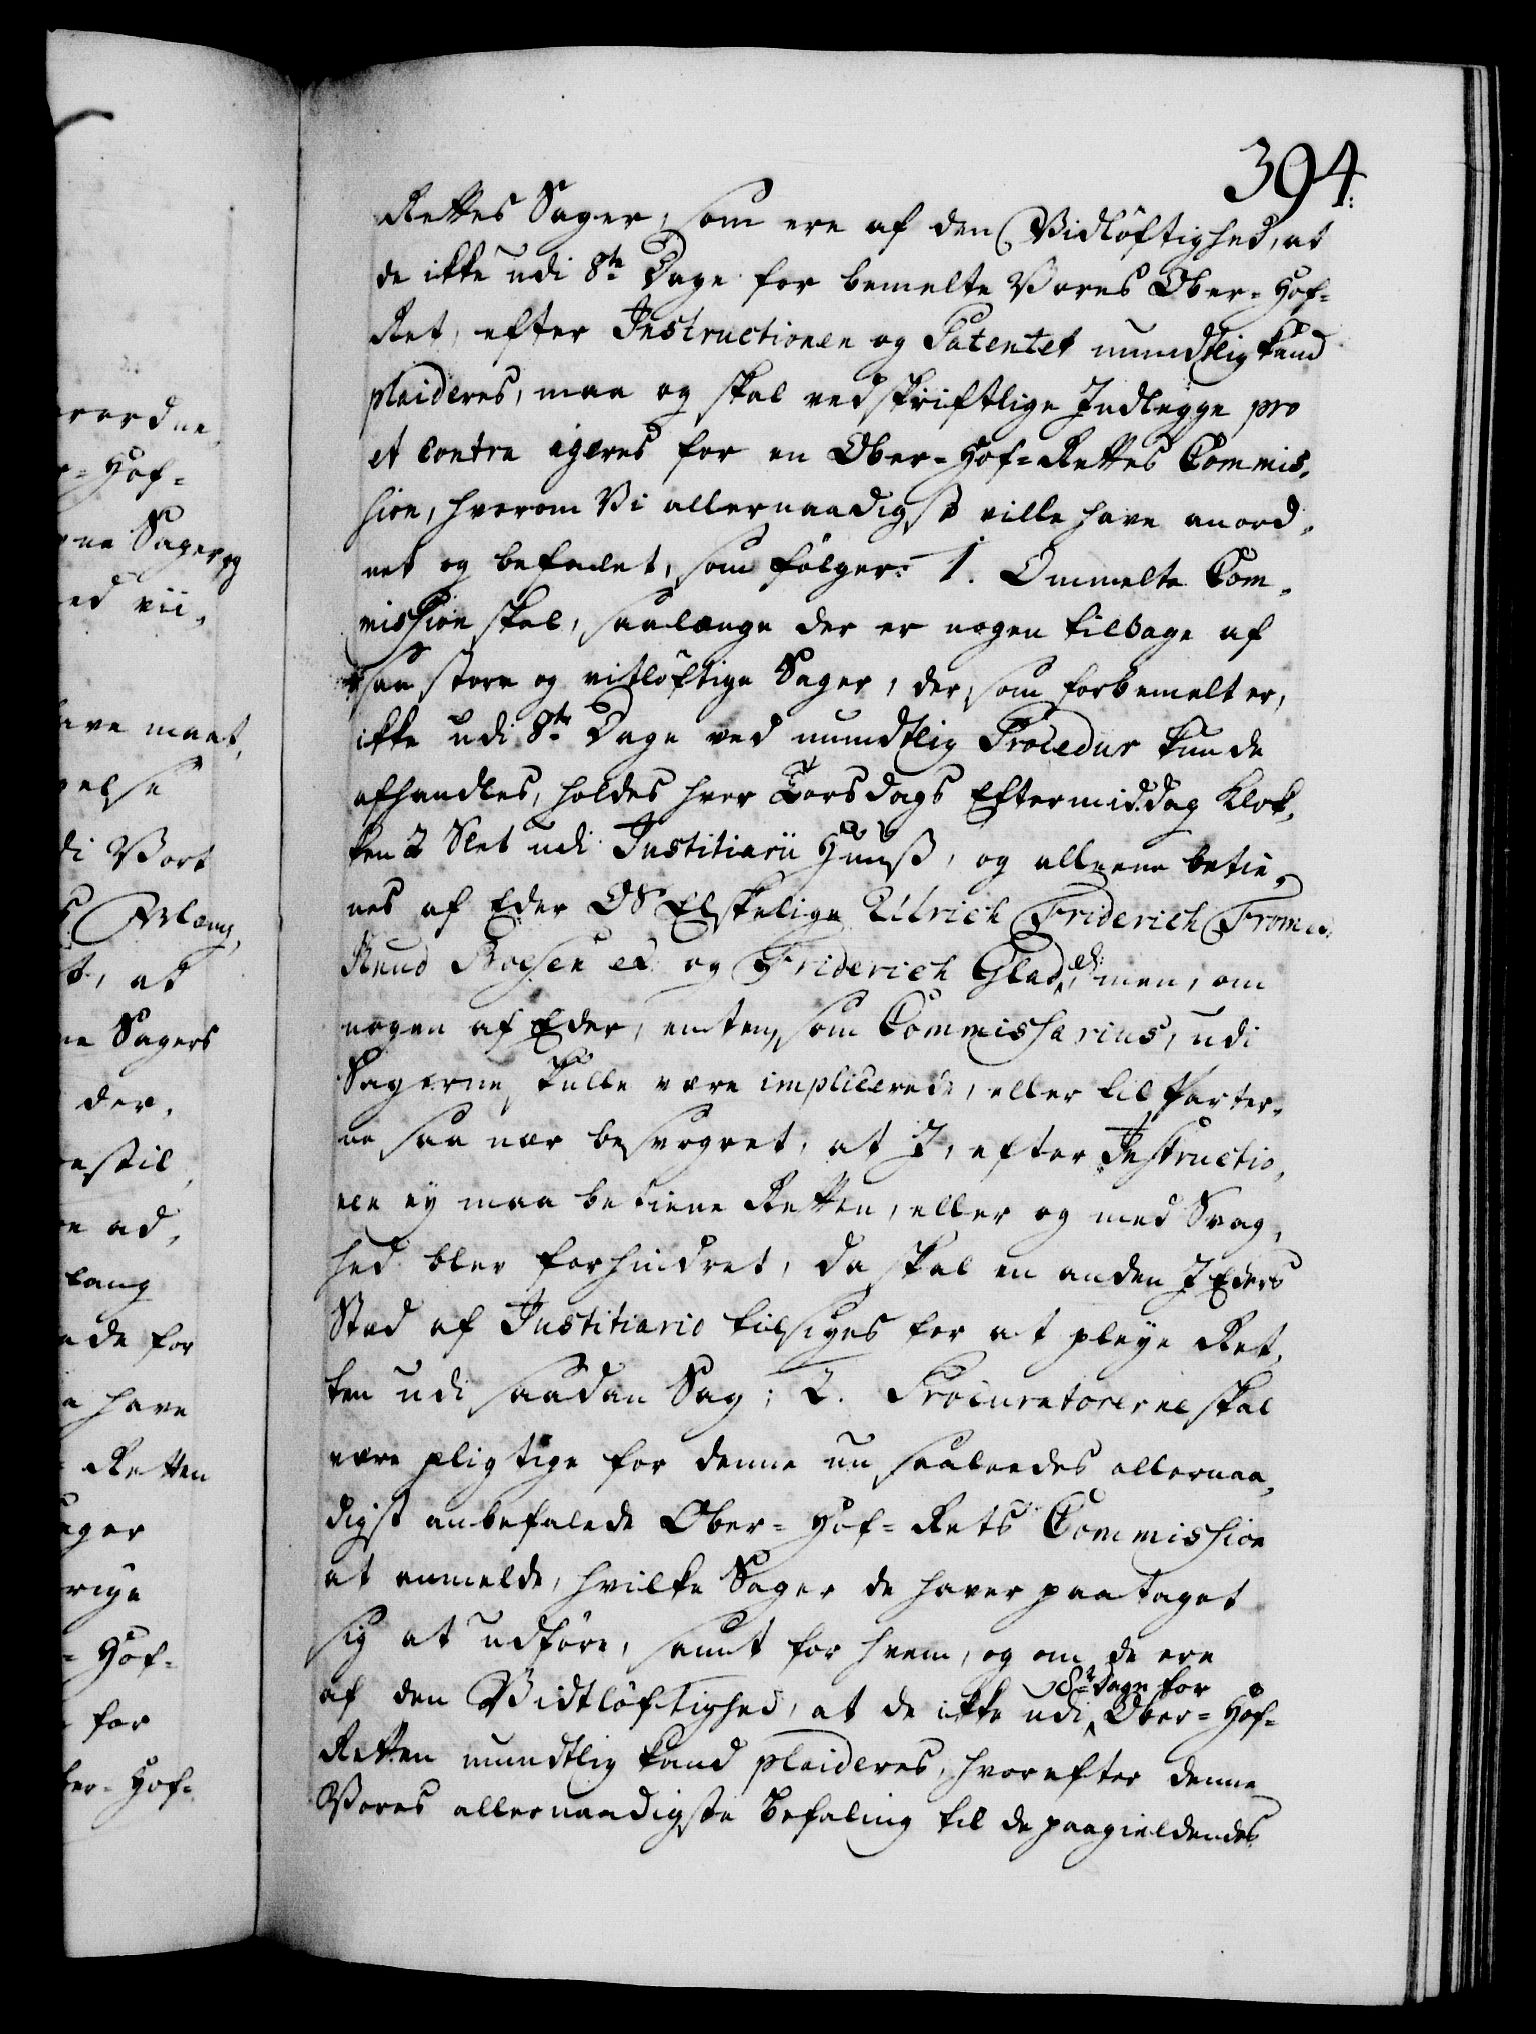 394.
Rettes Sager, som ere af den Vidløftighed, at
de ikke udi 8te Dage for bemelte Vores Ober-Hof-
Ret, efter Instructionen og Patentet mundtlig kand
plaideres, maa og skal ved skriftlige Indlegge pro
et contra ageres for en Ober-Hof-Rettes Commis-
sion, hvorom Vi allernaadigst ville have anord-
net og befalet, som følger: 1. Ommelte Com-
mission skal, saalænge der er nogen tilbage af
saa store og vitløftige Sager, der, som forbemelt er,
ikke udi 8te Dage ved mundtlig Procedur kunde
afhandles, holdes hver Torsdags Eftermiddag Klok-
ken 2 Slet udi Justitiarii Huuß, og alleene betie-
nes af Eder Os Elskelige Ulrich Friderich Fromm
Knud Boesen ed: og Friderich Glad, ed: men, om
nogen af Eder, enten som Commissarius, udi
Sagerne skulle være implicerede, eller til Parter-
ne saa nær besvogret, at I, efter Instructio-
nen ey maa betiene Retten, eller og med Svag-
hed blev forhindret, da skal en anden I Eders
Stæd af Justitiario tilsiges for at pleye Ret-
ten udi saadan Sag; 2. Procuratorerne skal
være pligtige for denne nu saaleedes allernaa-
digst anbefalede Ober-Hof-Rets Commission
at anmelde, hvilke Sager de haver paataget
sig at udføre, samt for hvem, og om de ere
af den Vidtløftighed, at de ikke udi 8te Dage for Ober-Hof-
Retten mundtlig kand plaideres, hvorefter denne
Vores allernaadigste Befaling til de paagieldendes
erordne
r-Hof-
rne Sager og
ed vii-
have maat-
else
di Vort
t, at
ne Sagers
der,
estil
e ad-
lang
ede for
a have
Retten
ager
rige
-Hof-
for
ber-Hof-